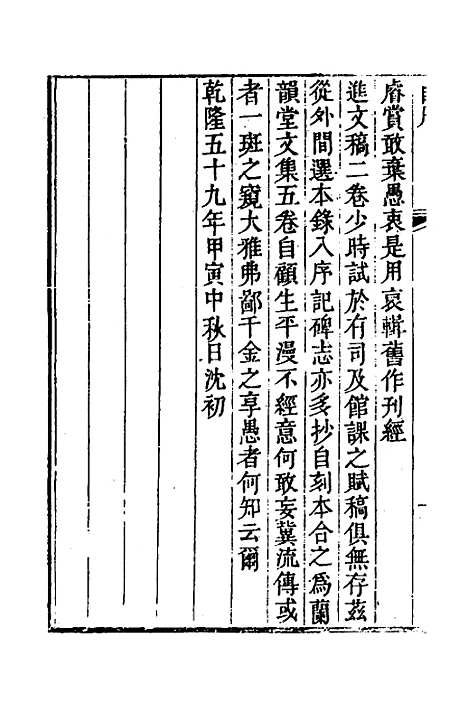 睿賞敢棄愚衷是用裒輯舊作刊經
進文稿二卷少時試於有司及館課之賦稿俱無存茲
從外間選本錄入序記碑志亦多抄自刻本合之為蘭
韻堂文集五卷自顧生平漫不經意何敢妄冀流傳或
者一斑之窺大雅弗鄙千金之享愚者何知云爾
乾隆五十九年甲寅中秋日沈初